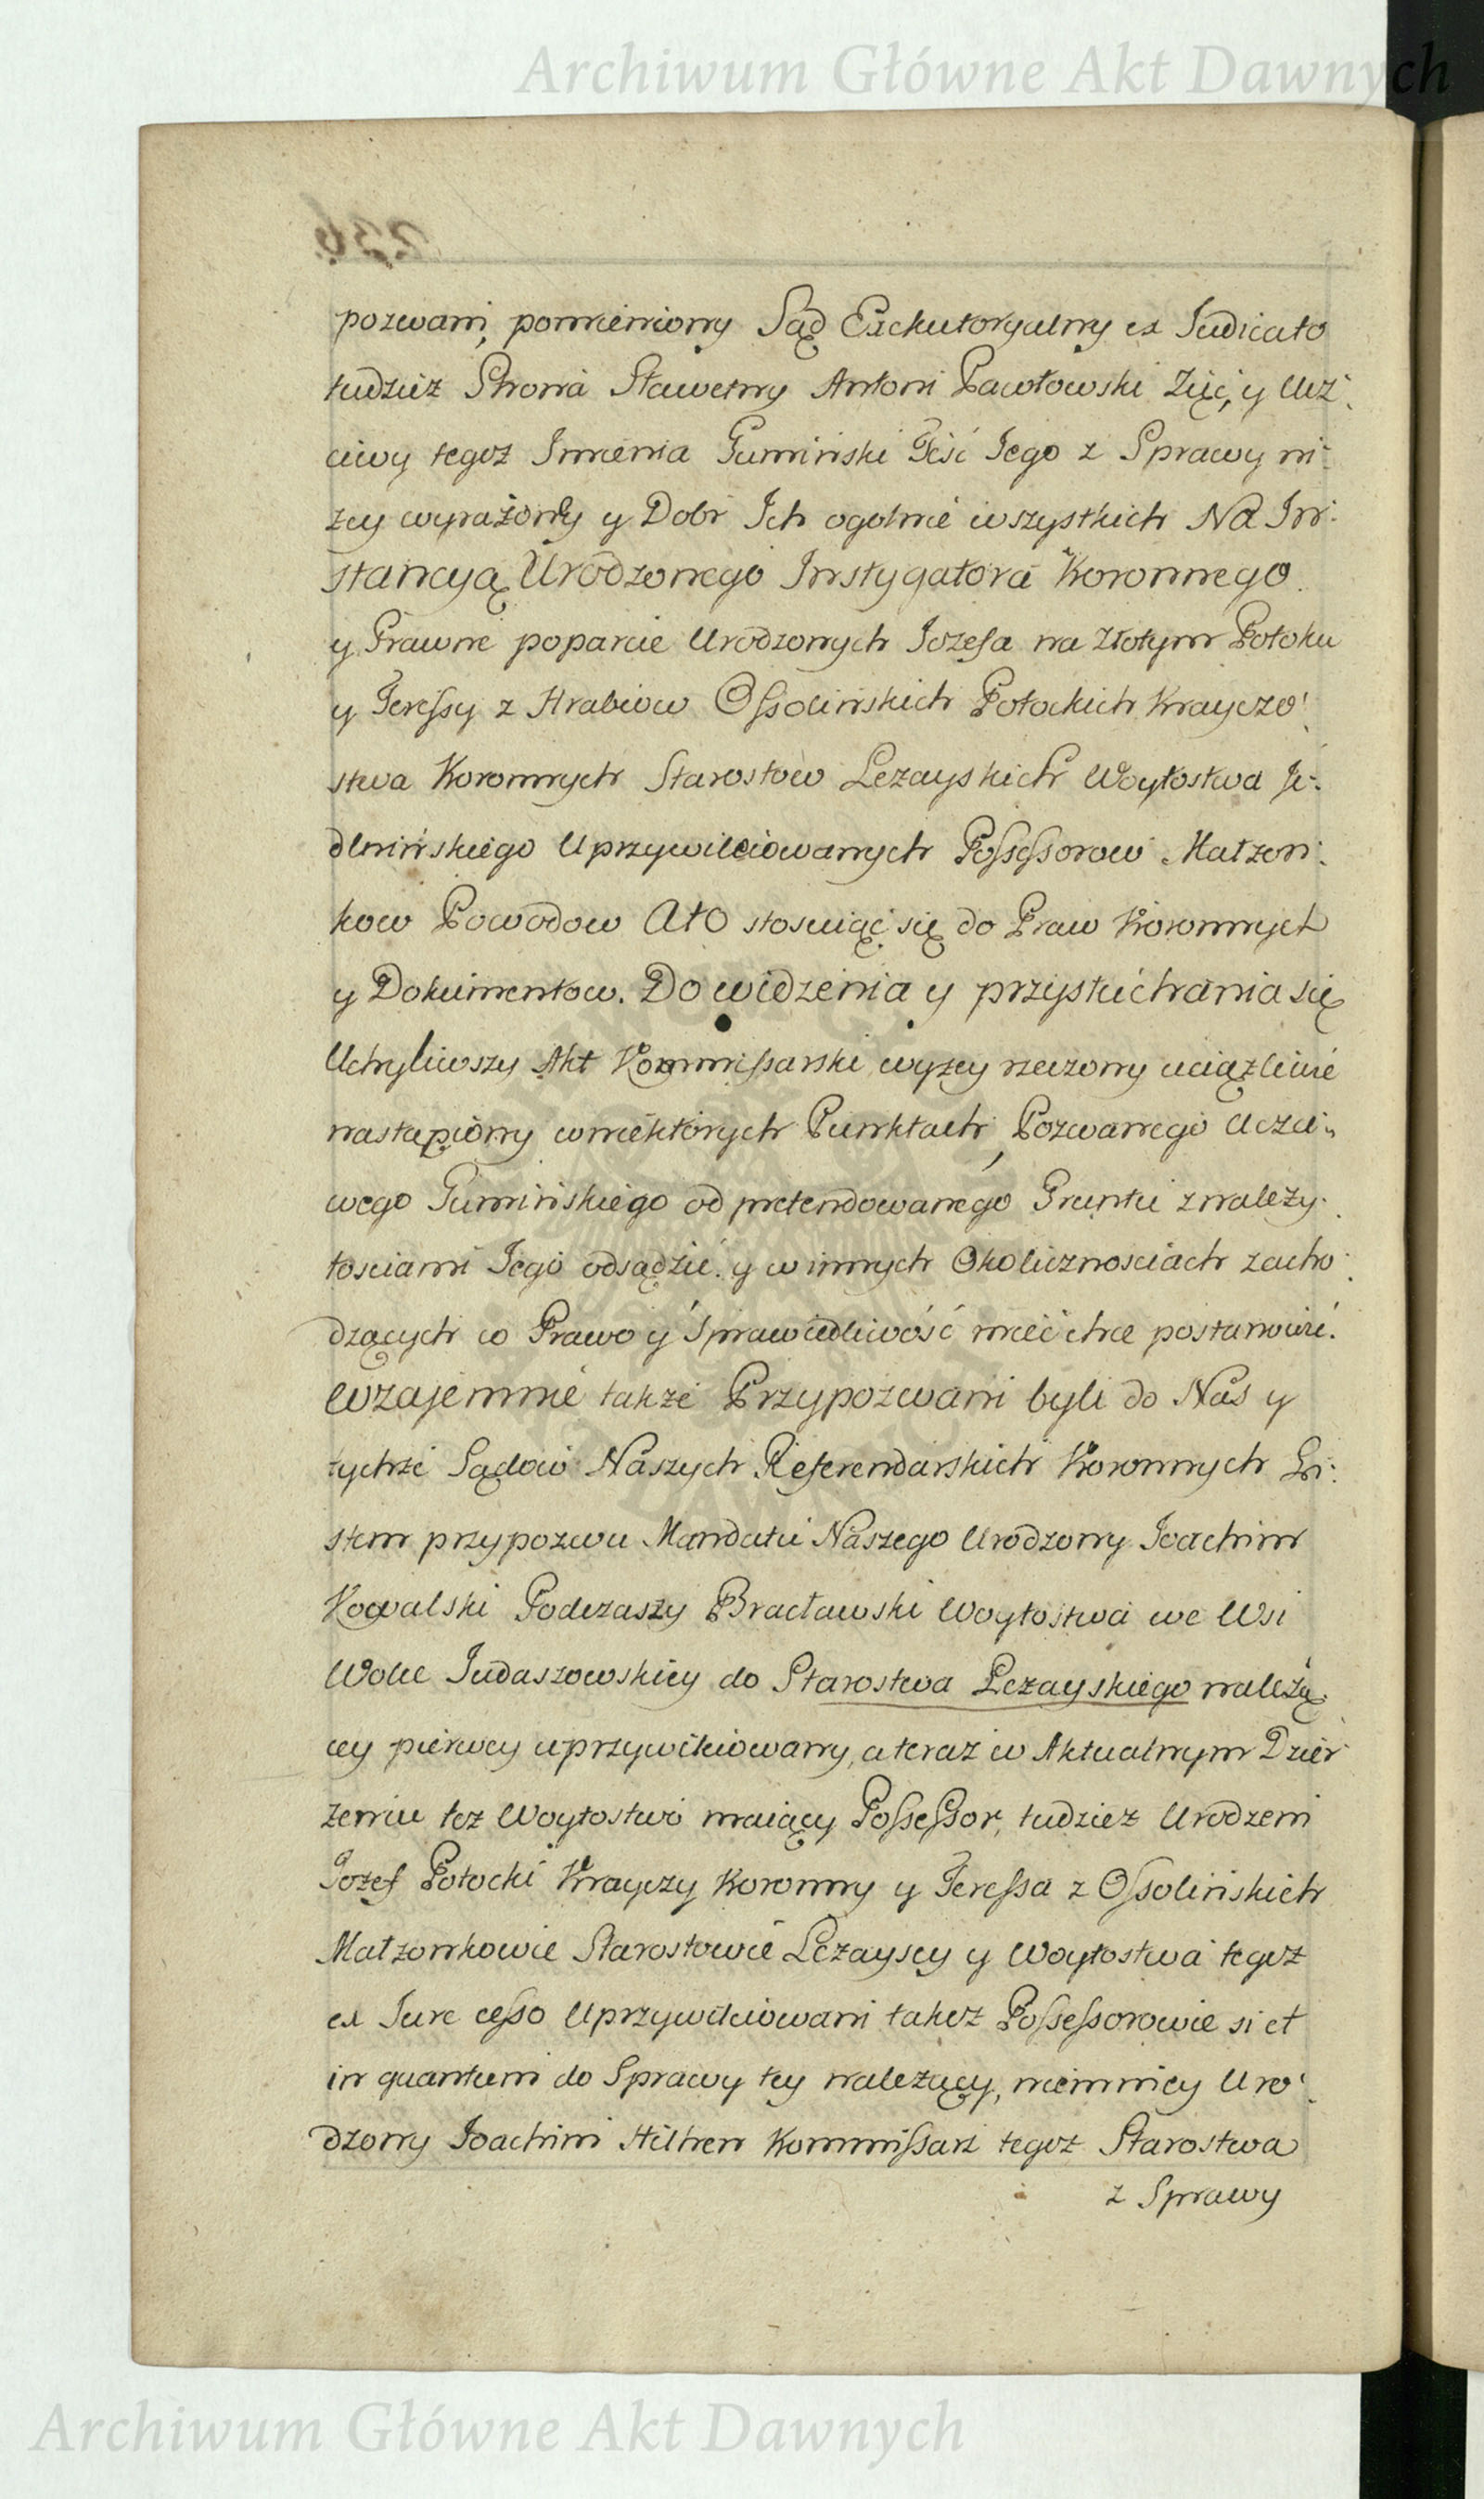 Archiwum Główne Akt Dawnych
236.
pozwani, pomieniony Sąd Exekutoryalny ex Judicato
tudziez Strona Sławetny Antoni Pawłowski Zięć, y Ucz
ciwy tegoż Imienia Gumiński Teść Jego z Sprawy ni:
żey wyrażoney y Dobr Ich ogolnie wszystkich Na In:
stancyą Urodzonego Instygatora Koronnego
y Prawne poparcie Urodzonych Jozefa na Złotym Potoku
y Teressy z Hrabiow Ossolińskich Potockich Krayczo
stwa Koronnych Starostow Leżayskich Woytostwa Je:
dlnińskiego Uprzywileiowanych Possessorow Małżon:
kow Powodow Ato stosuiąc się do Praw Koronnych
y Dokumentow. Do widzenia y przysłuchania się
Uchyliwszy Akt Kommissarski wyżey rzeczony uciążliwie
nastąpiony w niektorych Punktach, Pozwanego Uczci:
wego Gumińskiego od pretendowanego Gruntu z należy:
tościami Jego odsądzić. y w innych Okolicznosciach zacho:
dzących co Prawo y Sprawiedliwość mieć chce postanowić.
Wzajemnie także Przypozwani byli do Nas y
tychże Sądow Naszych Referendarskich Koronnych Li:
stem przypozwu Mandatu Naszego Urodzony Joachim
Kowalski Podczaszy Bracławski Woytostwa we Wsi
Wolce Judaszowskiey do Starostwa Leżayskiego należą:
cey pierwey uprzywileiowany, a teraz w Aktualnym Dzier
żeniu toż Woytostwo maiący Possessor, tudziez Urodzeni
Jozef Potocki Krayczy Koronny y Teressa z Ossolińskich
Małżonkowie Starostowie Leżayscy y Woytostwa tegoż
ex Jure cesso Uprzywileiowani takoż Possessorowie si et
in quantum do Sprawy tey należący, niemniey Uro
dzony Joachim Hiltren Kommissarz tegoż Starostwa
z Sprawy
Archiwum Główne Akt Dawnych